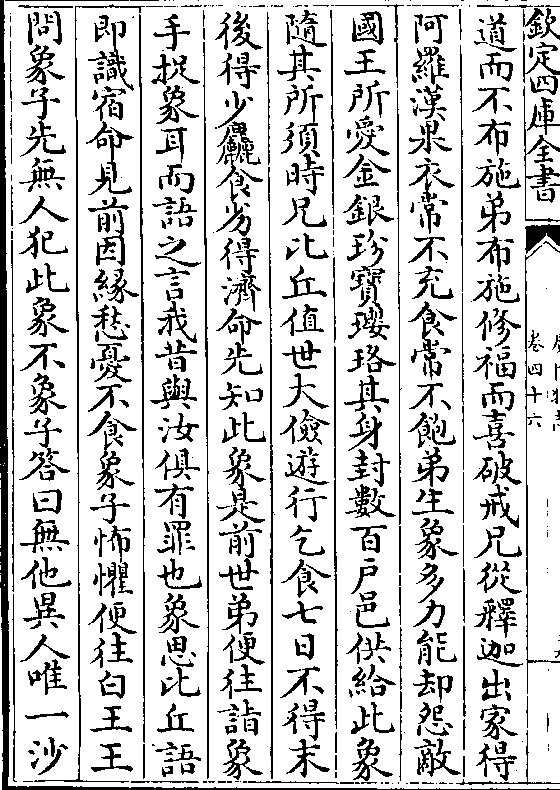 欽定四庫全書
卷四十六
道而不布施弟布施修福而喜破戒兄從釋迦出家得
阿羅漢果衣常不充食常不飽弟生象多力能却怨敵
國王所愛金銀珍寶瓔珞其身封數百戶邑供給此象
隨其所須時兄比丘值世大儉遊行乞食七日不得末
後得少麤食劣得濟命先知此象是前世弟便往詣象
手捉象耳而語之言我昔與汝俱有罪也象思比丘語
即識宿命見前因緣愁憂不食象子怖懼便往白王王
問象子先無人犯此象不象子答曰無他異人唯一沙